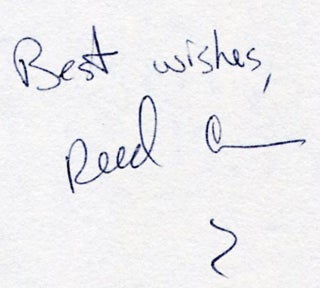 Best wishes,
Reed